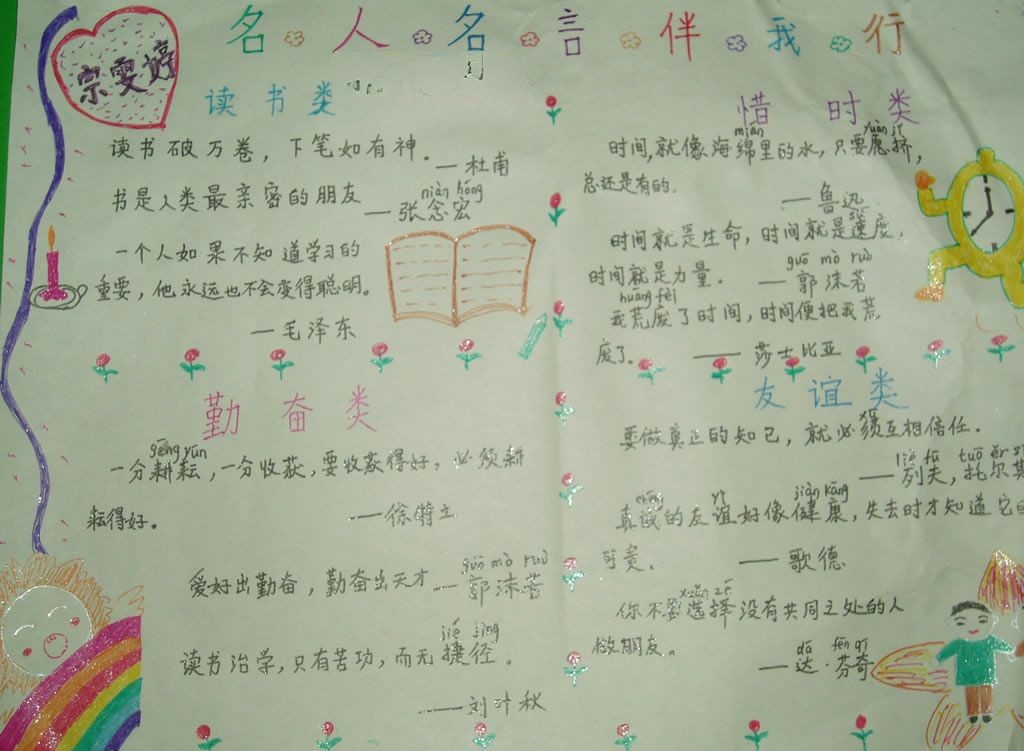 名人名言伴我行
宗雯婷
读书类
读书破万卷，下笔如有神。
—杜甫
书是人类最亲密的朋友
niàn hóng
—张念宏
一个人如果不知道学习的
重要，他永远也不会变得聪明。
—毛泽东
惜时类
mián yuàn jǐ
时间，就像海绵里的水，只要愿挤，
总还是有的。
——鲁迅
sù
时间就是生命，时间就是速度，
时间就是力量。
guō mò ruò
——郭沫若
huāng fèi
我荒废了时间，时间便把我荒
废了。
——莎士比亚
勤奋类
gēng yún
一分耕耘，一分收获，要收获得好，必须耕
耘得好。
——徐特立
爱好出勤奋，勤奋出天才
guō mò ruò
——郭沫若
jié jìng
读书治学，只有苦功，而无捷径。
——刘叶秋
友谊类
要做真正的知己，就必须互相信任。
liè fū tuō ěr s
——列夫，托尔斯
chéng yì jiàn kāng
真诚的友谊好像健康，失去时才知道它的
可贵。
——歌德
xuǎn zé
你不要选择没有共同之处的人
做朋友。
dá fēn qí
——达·芬奇